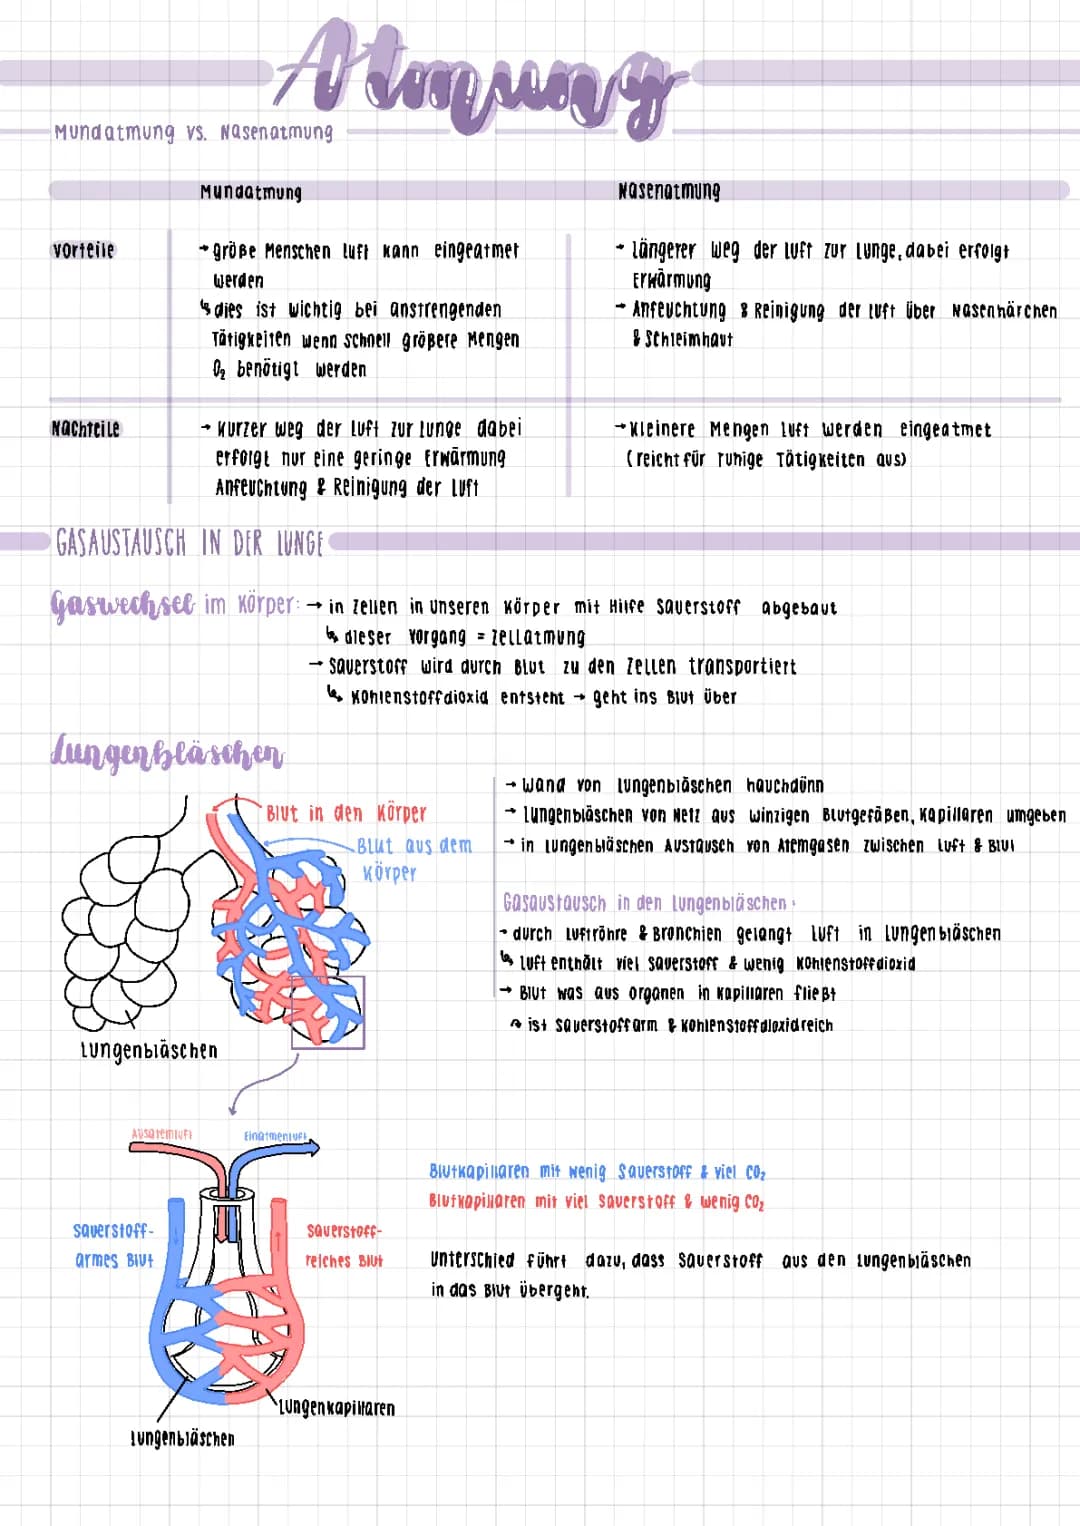 Atmung
Mundatmung vs. Nasenatmung
Mundatmung
Nasenatmung
Vorteile
→ große Menschen Luft kann eingeatmet
werden
↳ dies ist wichtig bei anstrengenden
Tätigkeiten wenn schnell größere Mengen
O₂ benötigt werden
→ Längerer Weg der Luft zur Lunge, dabei erfolgt
Erwärmung
→ Anfeuchtung & Reinigung der Luft über Nasenhärchen
& Schleimhaut
Nachteile
→ Kurzer Weg der Luft zur Lunge dabei
erfolgt nur eine geringe Erwärmung
Anfeuchtung & Reinigung der Luft
→ Kleinere Mengen Luft werden eingeatmet
(reicht für ruhige Tätigkeiten aus)
GASAUSTAUSCH IN DER LUNGE
Gaswechsel im Körper: → in Zellen in unseren Körper mit Hilfe Sauerstoff abgebaut
↳ dieser Vorgang = Zellatmung
→ Sauerstoff wird durch Blut zu den Zellen transportiert
↳ Kohlenstoffdioxid entsteht → geht ins Blut über
Lungenbläschen
Blut in den Körper
Blut aus dem
Körper
Lungenbläschen
→ Wand von Lungenbläschen hauchdünn
→ Lungenbläschen von Netz aus winzigen Blutgefäßen, Kapillaren umgeben
→ in Lungenbläschen Austausch von Atemgasen zwischen Luft & Blut
Gasaustausch in den Lungenbläschen:
→ durch Luftröhre & Bronchien gelangt Luft in Lungenbläschen
↳ Luft enthält viel Sauerstoff & wenig Kohlenstoffdioxid
→ Blut was aus Organen in Kapillaren fließt
↷ ist Sauerstoffarm & Kohlenstoffdioxidreich
Ausatemluft
Einatmenluft
Sauerstoff-
armes Blut
Sauerstoff-
reiches Blut
Lungenkapillaren
Lungenbläschen
Blutkapillaren mit wenig Sauerstoff & viel CO₂
Blutkapillaren mit viel Sauerstoff & wenig CO₂
Unterschied führt dazu, dass Sauerstoff aus den Lungenbläschen
in das Blut übergeht.